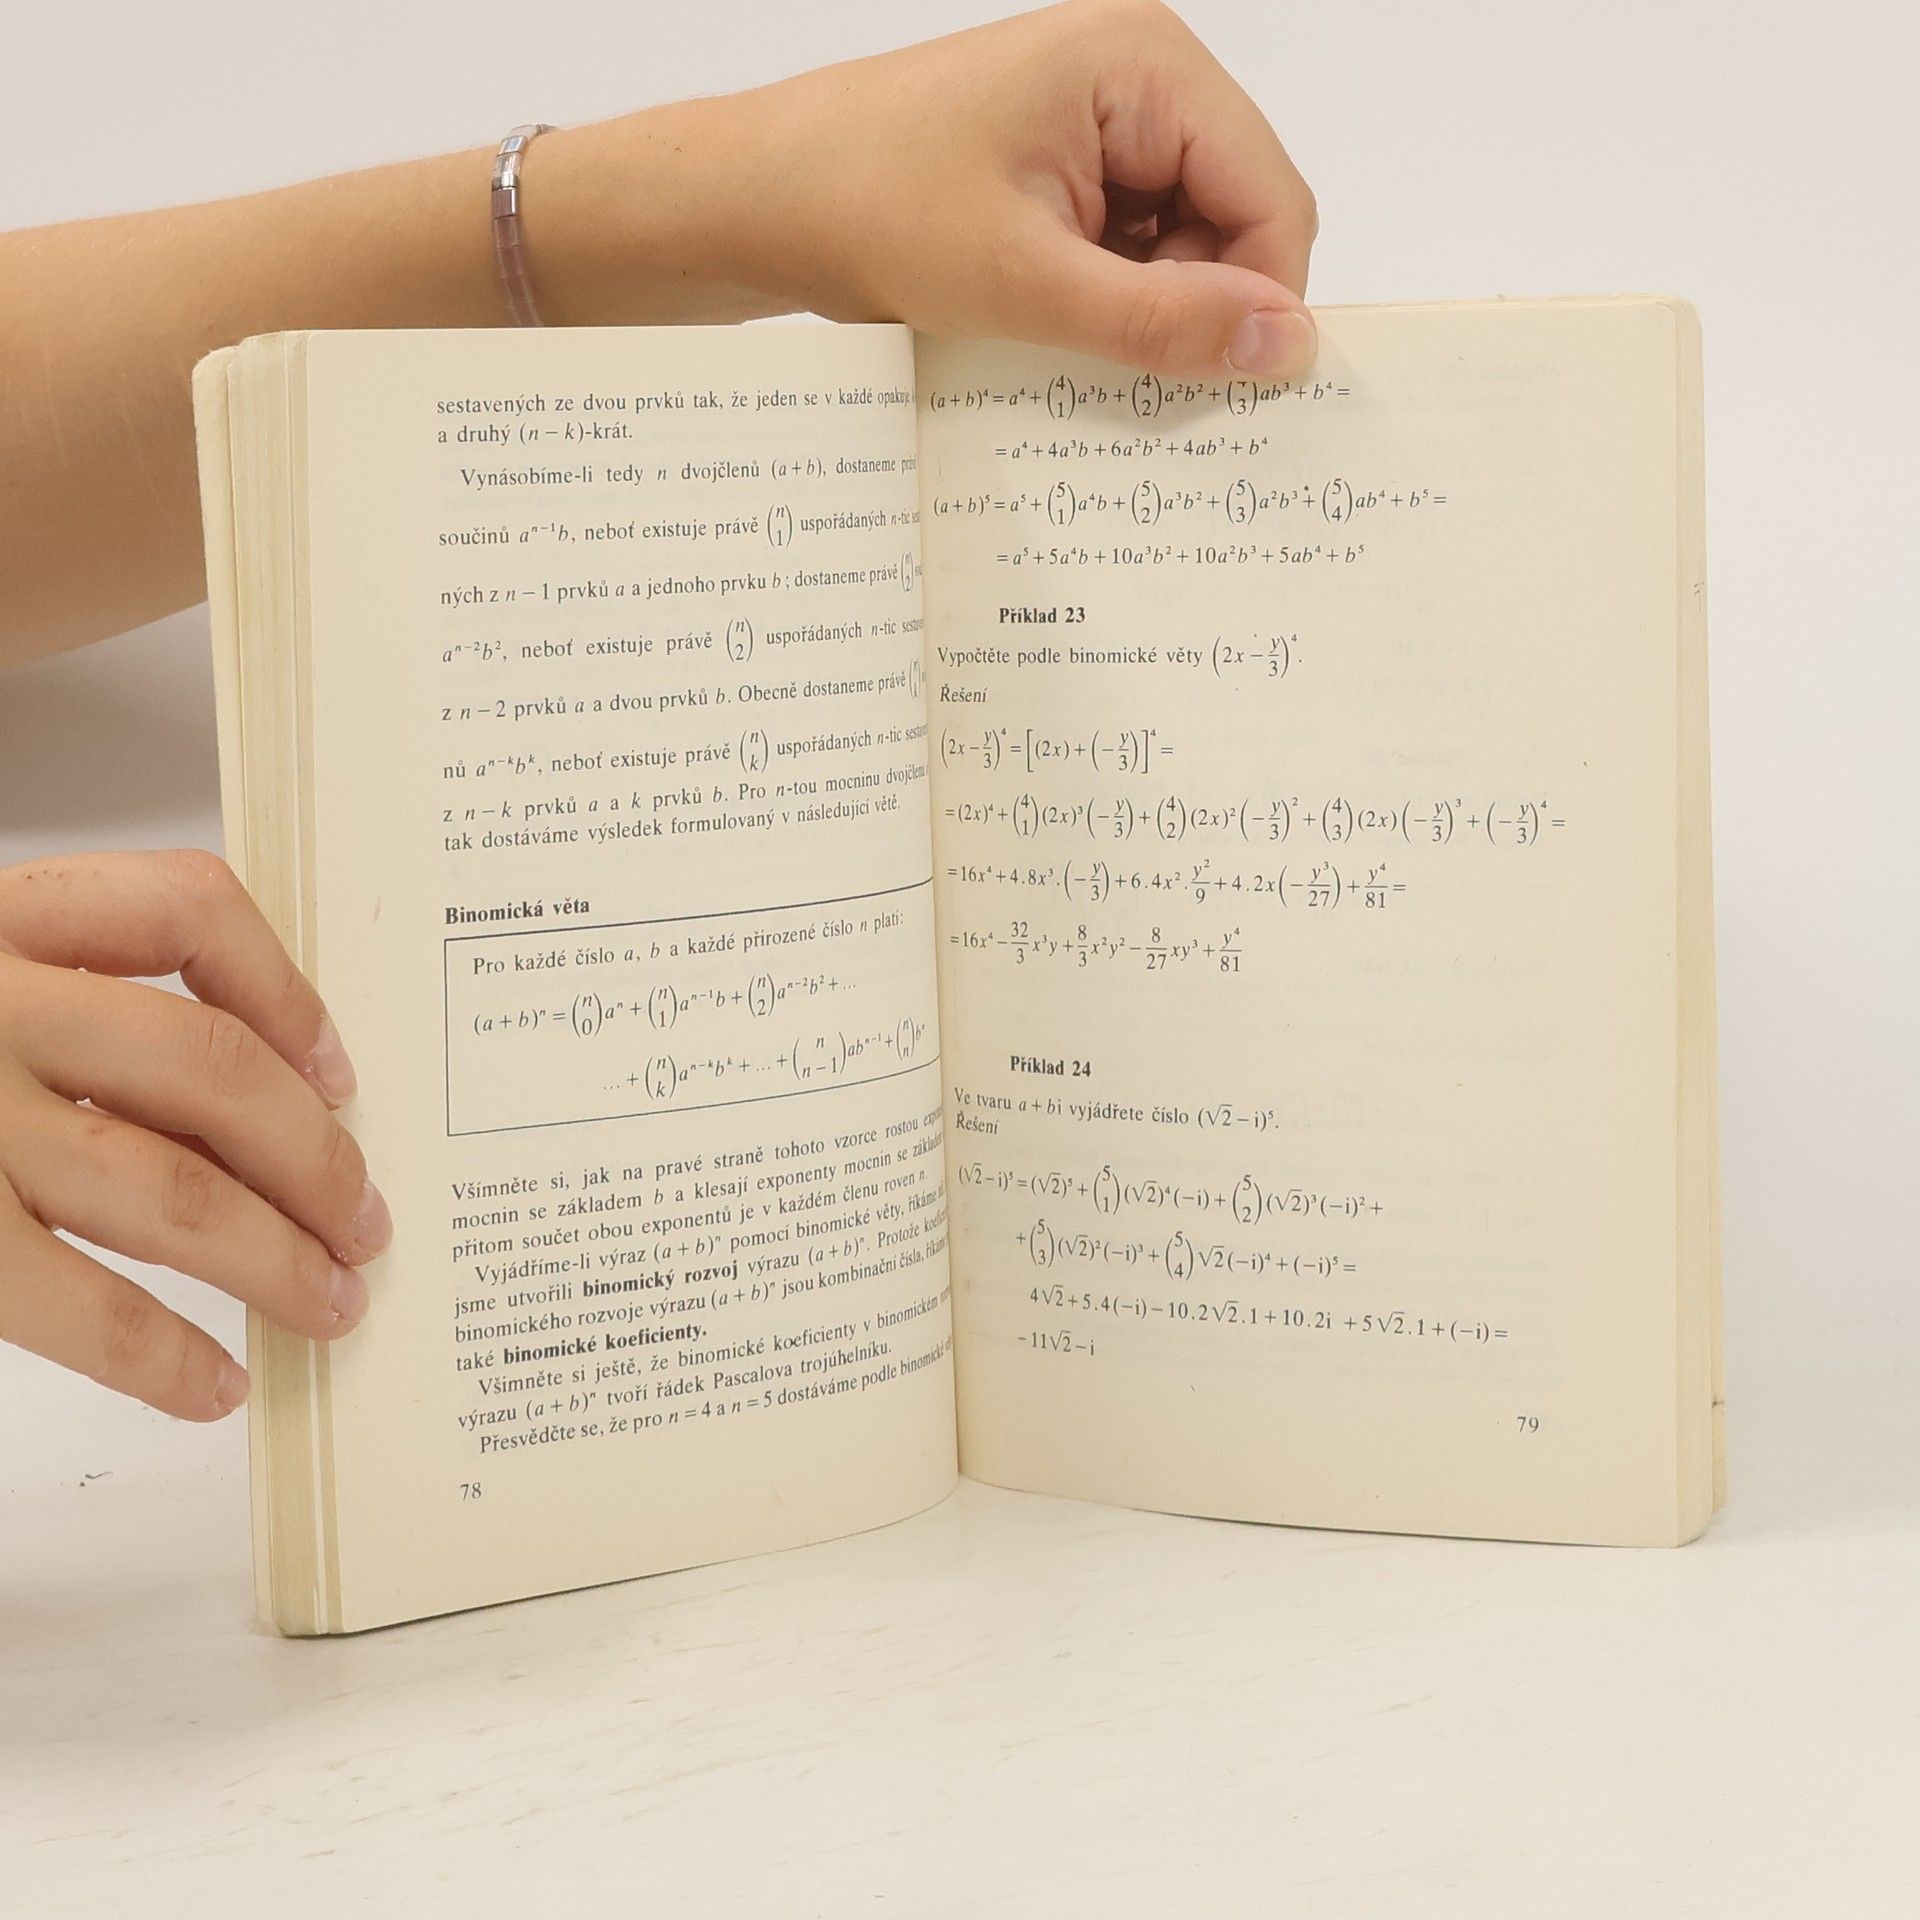 sestavených ze dvou prvků tak, že jeden se v každé opakuje
a druhý (n − k)-krát.
Vynásobíme-li tedy n dvojčlenů (a + b), dostaneme
součinů aⁿ⁻¹b, neboť existuje právě (n 1) uspořádaných n-tic
ných z n − 1 prvků a a jednoho prvku b; dostaneme právě (n 2)
aⁿ⁻²b², neboť existuje právě (n 2) uspořádaných n-tic
z n − 2 prvků a a dvou prvků b. Obecně dostaneme právě (n k)
nů aⁿ⁻ᵏbᵏ, neboť existuje právě (n k) uspořádaných n-tic
z n − k prvků a a k prvků b. Pro n-tou mocninu dvojčlenu
tak dostáváme výsledek formulovaný v následující větě.
Binomická věta
Pro každé číslo a, b a každé přirozené číslo n platí:
(a + b)ⁿ = (n 0)aⁿ + (n 1)aⁿ⁻¹b + (n 2)aⁿ⁻²b² + ...
... + (n k)aⁿ⁻ᵏbᵏ + ... + (n n−1)abⁿ⁻¹ + (n n)bⁿ
Všímněte si, jak na pravé straně tohoto vzorce rostou
mocnin se základem b a klesají exponenty mocnin se
přitom součet obou exponentů je v každém členu roven n.
Vyjádříme-li výraz (a + b)ⁿ pomocí binomické věty, říkáme
jsme utvořili binomický rozvoj výrazu (a + b)ⁿ. Protože
binomického rozvoje výrazu (a + b)ⁿ jsou kombinační čísla,
také binomické koeficienty.
Všimněte si ještě, že binomické koeficienty v binomickém
výrazu (a + b)ⁿ tvoří řádek Pascalova trojúhelníku.
Přesvědčte se, že pro n = 4 a n = 5 dostáváme podle binomické
78
(a + b)⁴ = a⁴ + (4 1)a³b + (4 2)a²b² + (4 3)ab³ + b⁴ =
= a⁴ + 4a³b + 6a²b² + 4ab³ + b⁴
(a + b)⁵ = a⁵ + (5 1)a⁴b + (5 2)a³b² + (5 3)a²b³ + (5 4)ab⁴ + b⁵ =
= a⁵ + 5a⁴b + 10a³b² + 10a²b³ + 5ab⁴ + b⁵
Příklad 23
Vypočtěte podle binomické věty (2x − y/3)⁴.
Řešení
(2x − y/3)⁴ = [(2x) + (−y/3)]⁴ =
= (2x)⁴ + (4 1)(2x)³(−y/3) + (4 2)(2x)²(−y/3)² + (4 3)(2x)(−y/3)³ + (−y/3)⁴ =
= 16x⁴ + 4.8x³.(−y/3) + 6.4x².y²/9 + 4.2x(−y³/27) + y⁴/81 =
= 16x⁴ − 32/3 x³y + 8/3 x²y² − 8/27 xy³ + y⁴/81
Příklad 24
Ve tvaru a + bi vyjádřete číslo (√2 − i)⁵.
Řešení
(√2 − i)⁵ = (√2)⁵ + (5 1)(√2)⁴(−i) + (5 2)(√2)³(−i)² +
+ (5 3)(√2)²(−i)³ + (5 4)√2(−i)⁴ + (−i)⁵ =
4√2 + 5.4(−i) − 10.2√2.1 + 10.2i + 5√2.1 + (−i) =
−11√2 − i
79